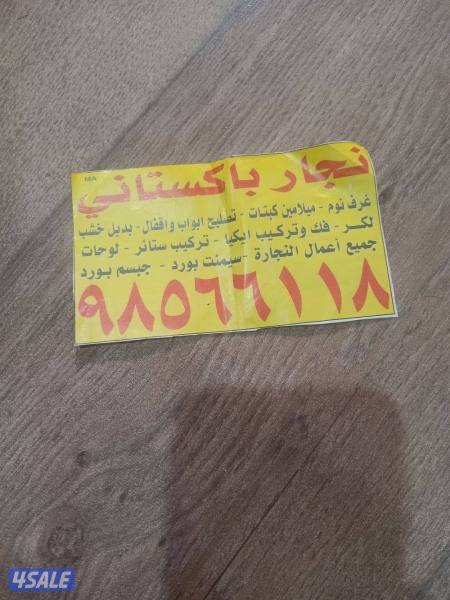 MA
نجار باكستاني
غرف نوم - ميلامين كبتات - تصليح ابواب واقفال - بديل خشب
لكر - فك وتركيب ايكيا - تركيب ستائر - لوحات
جميع أعمال النجارة - سيمنت بورد - جبسم بورد
٩٨٥٦٦١١٨
4SALE